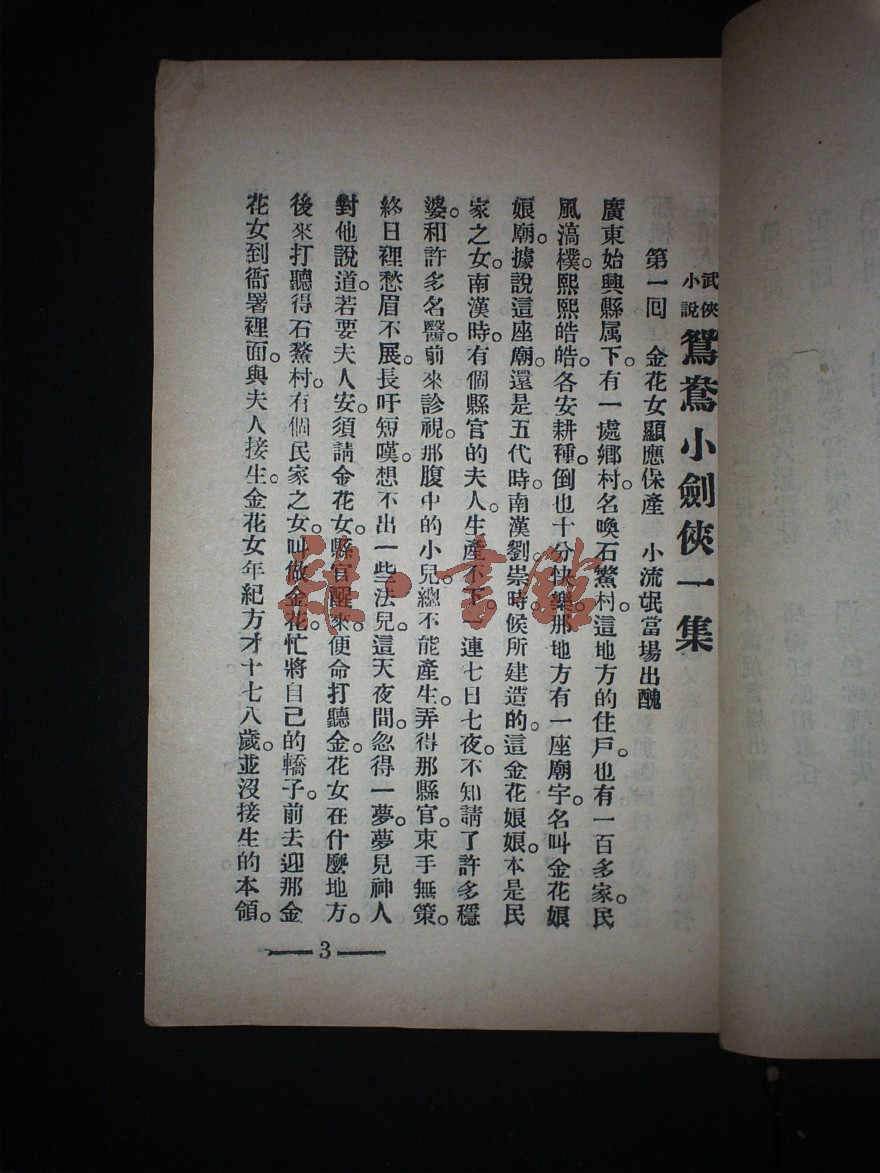 武俠小說 鴛鴦小劍俠一集
第一回 金花女顯應保產 小流氓當場出醜
廣東始興縣属下。有一處鄉村。名喚石鰲村。這地方的住戶。也有一百多家。民
風滈樸。熙熙皓皓。各安耕種。倒也十分快樂。那地方有一座廟宇。名叫金花娘
娘廟。據說這座廟。還是五代時。南漢劉崇時候所建造的。這金花娘娘。本是民
家之女。南漢時。有個縣官的夫人。生產不下。一連七日七夜。不知請了許多穩
婆。和許多名醫。前來診視。那腹中的小兒。總不能產生。弄得那縣官。束手無策。
終日裡愁眉不展。長吁短嘆。想不出一些法兒。這天夜間。忽得一夢。夢見神人
對他說道。若要夫人安。須請金花女。縣官醒來。便命打聽金花女在什麼地方。
後來打聽得石鰲村。有個民家之女。叫做金花。忙將自己的轎子。前去迎那金
花女到衙署裡面。與夫人接生。金花女年紀方才十七八歲。並沒接生的本領。
3
雜·書館